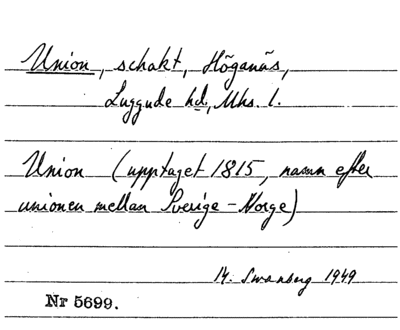 Union, schakt, Höganäs,
Luggude hd, Mhs. l.
Union (upptaget 1815, namn efter
unionen mellan Sverige - Norge)
H. Swanberg 1949
Nr 5699.